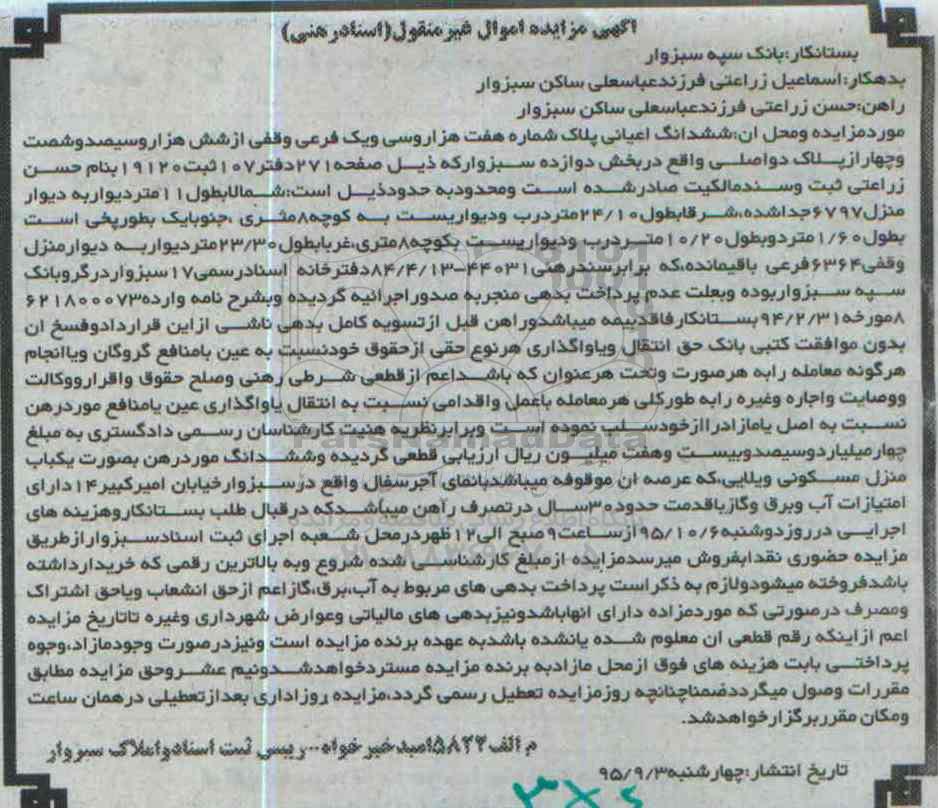 اگهی مزایده اموال غیر منقول(اسناد رهنی)
بستانکار:بانک سپه سبزوار
بدهکار:اسماعیل زراعتی فرزندعباسعلی ساکن سبزوار
راهن:حسن زراعتی فرزندعباسعلی ساکن سبزوار
موردمزایده ومحل ان:ششدانگ اعیانی پلاک شماره هفت هزاروسی ویک فرعی وقفی ازشش هزاروسیصدوشصت
وچهارازپلاک دواصلی واقع دربخش دوازده سبزوارکه ذیل صفحه۲۷۱دفتر۱۰۷ثبت۱۹۱۲۰بنام حسن
زراعتی ثبت وسندمالکیت صادرشده است ومحدودبه حدودذیل است:شمالابطول۱۱متردیواربه دیوار
منزل۶۷۹۷جداشده،شرقابطول۲۴/۱۰متردرب ودیواریست به کوچه۸متری ،جنوبایک بطورپخی است
بطول۱/۶۰متردوبطول۱۰/۲۰متردرب ودیواریست بکوچه۸متری،غربابطول۲۳/۳۰متردیواربه دیوارمنزل
وقفی۶۳۶۴فرعی باقیمانده،که برابرسندرهنی۴۴۰۳۱-۸۴/۴/۱۳دفترخانه اسنادرسمی۱۷سبزواردرگروبانک
سپه سبزواربوده وبعلت عدم پرداخت بدهی منجربه صدوراجرائیه گردیده وبشرح نامه وارده۶۲۱۸۰۰۰۷۳
۸مورخه۹۴/۲/۳۱بستانکارفاقدبیمه میباشدوراهن قبل ازتسویه کامل بدهی ناشی ازاین قراردادوفسخ ان
بدون موافقت کتبی بانک حق انتقال ویاواگذاری هرنوع حقی ازحقوق خودنسبت به عین یامنافع گروگان ویاانجام
هرگونه معامله رابه هرصورت وتحت هرعنوان که باشداعم ازقطعی شرطی رهنی وصلح حقوق واقرارووکالت
ووصایت واجاره وغیره رابه طورکلی هرمعامله یاعمل واقدامی نسبت به انتقال یاواگذاری عین یامنافع موردرهن
نسبت به اصل یامازادراازخودسلب نموده است وبرابرنظریه هنیت کارشناسان رسمی دادگستری به مبلغ
چهارمیلیاردوسیصدوبیست وهفت میلیون ریال ارزیابی قطعی گردیده وششدانگ موردرهن بصورت یکباب
منزل مسکونی ویلایی،که عرصه ان موقوفه میباشدبانمای آجرسفال واقع درسبزوارخیابان امیرکبیر۱۴دارای
امتیازات آب وبرق وگازباقدمت حدود۳۰سال درتصرف راهن میباشدکه درقبال طلب بستانکاروهزینه های
اجرایی درروزدوشنبه۹۵/۱۰/۶ازساعت۹صبح الی۱۲ظهردرمحل شعبه اجرای ثبت اسنادسبزوارازطریق
مزایده حضوری نقدابفروش میرسدمزایده ازمبلغ کارشناسی شده شروع وبه بالاترین رقمی که خریدارداشته
باشدفروخته میشودولازم به ذکراست پرداخت بدهی های مربوط به آب،برق،گازاعم ازحق انشعاب ویاحق اشتراک
ومصرف درصورتی که موردمزاده دارای انهاباشدونیزبدهی های مالیاتی وعوارض شهرداری وغیره تاتاریخ مزایده
اعم ازاینکه رقم قطعی ان معلوم شده یانشده باشدبه عهده برنده مزایده است ونیزدرصورت وجودمازاد،وجوه
پرداختی بابت هزینه های فوق ازمحل مازادبه برنده مزایده مستردخواهدشدونیم عشروحق مزایده مطابق
مقررات وصول میگرددضمناچنانچه روزمزایده تعطیل رسمی گردد،مزایده روزاداری بعدازتعطیلی درهمان ساعت
ومکان مقرربرگزارخواهدشد.
م الف۵۸۲۲امیدخیرخواه...رییس ثبت اسنادواملاک سبزوار
تاریخ انتشار:چهارشنبه۹۵/۹/۳